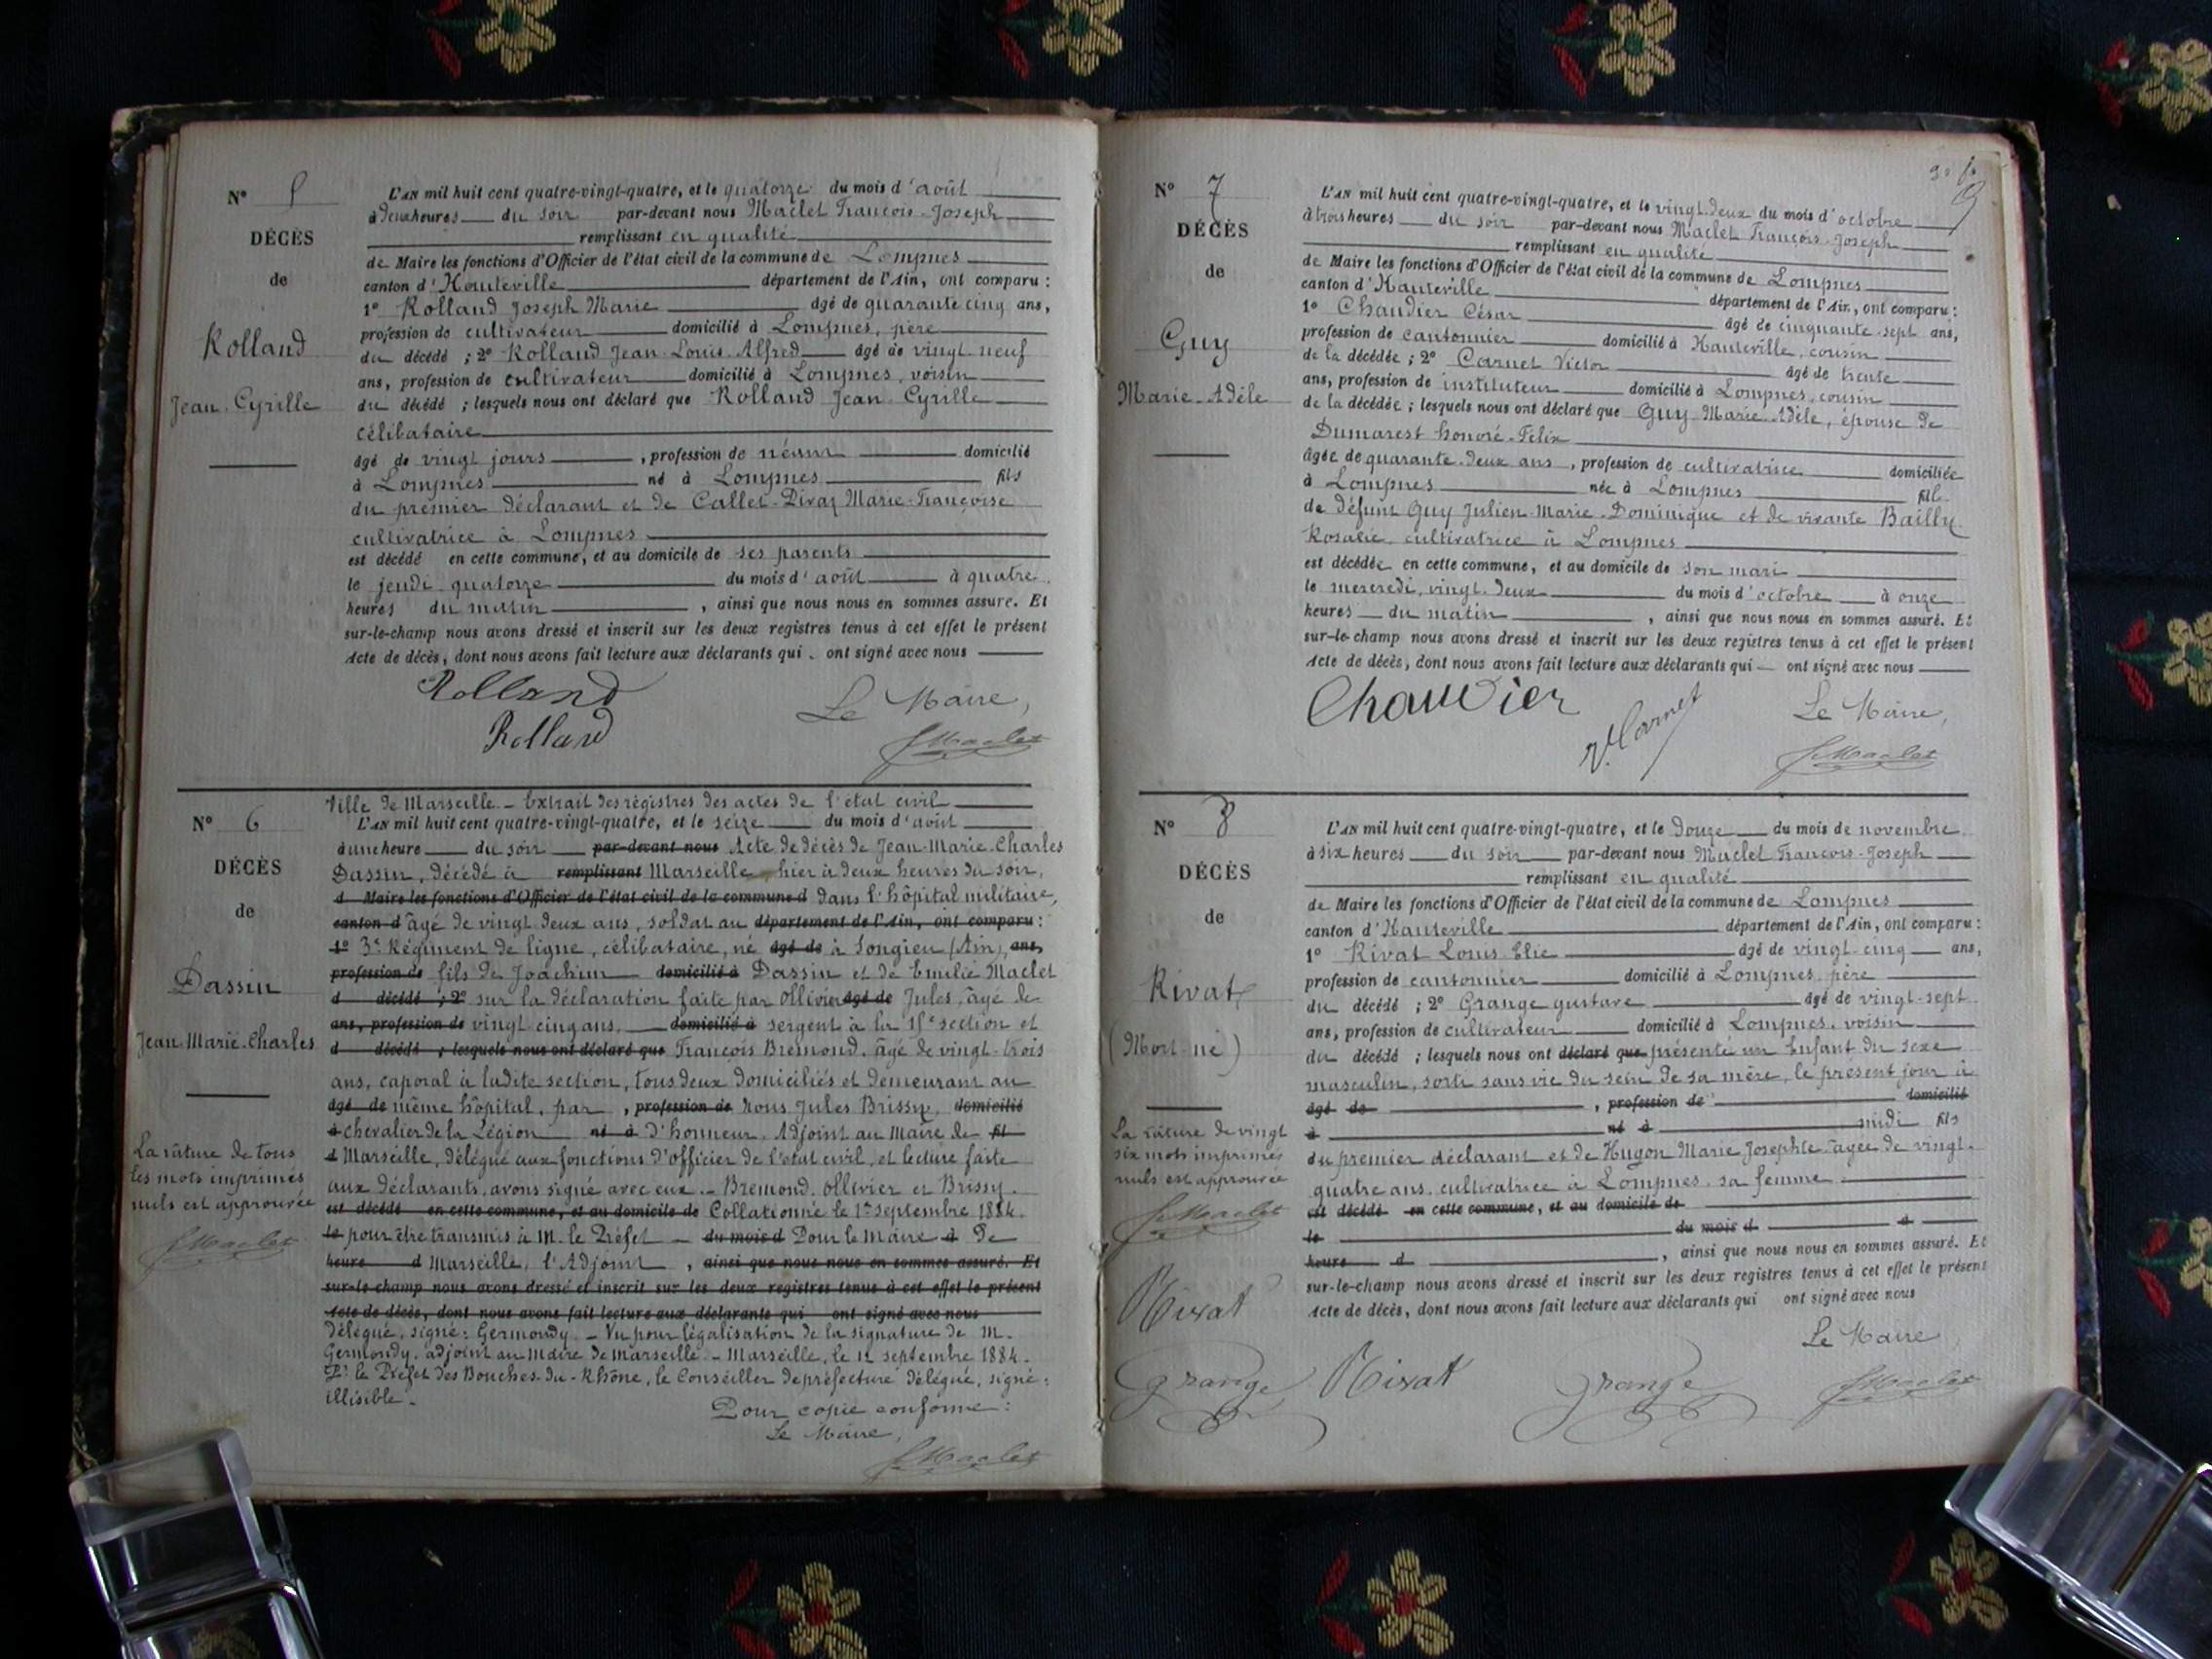 N° 5
DÉCÈS
de
Rolland
Jean-Cyrille
L'AN mil huit cent quatre-vingt-quatre, et le quatorze du mois d'août
à deux heures du soir par-devant nous Maclet François-Joseph
remplissant en qualité
de Maire les fonctions d'Officier de l'état civil de la commune de Lompnes
canton d'Hauteville département de l'Ain, ont comparu :
1° Rolland Joseph Marie âgé de quarante cinq ans,
profession de cultivateur domicilié à Lompnes, père
du décédé ; 2° Rolland Jean-Louis-Alfred âgé de vingt-neuf
ans, profession de cultivateur domicilié à Lompnes, voisin
du décédé ; lesquels nous ont déclaré que Rolland Jean-Cyrille
célibataire
âgé de vingt jours, profession de néant domicilié
à Lompnes né à Lompnes fils
du premier déclarant et de Callet-Divaz Marie-Françoise
cultivatrice à Lompnes
est décédé en cette commune, et au domicile de ses parents
le jeudi quatorze du mois d'août à quatre
heures du matin, ainsi que nous nous en sommes assuré. Et
sur-le-champ nous avons dressé et inscrit sur les deux registres tenus à cet effet le présent
Acte de décès, dont nous avons fait lecture aux déclarants qui ont signé avec nous
Rolland
Rolland
Le Maire,
f Maclet
N° 6
DÉCÈS
de
Dassin
Jean-Marie-Charles
La râture de tous
les mots imprimés
nuls est approuvée
f Maclet
Ville de Marseille. - Extrait des régistres des actes de l'état civil
L'AN mil huit cent quatre-vingt-quatre, et le seize du mois d'août
à une heure du soir par-devant nous Acte de décès de Jean-Marie-Charles
Dassin, décédé à remplissant Marseille, hier à deux heures du soir,
d Maire les fonctions d'Officier de l'état civil de la commune d dans l'hôpital militaire,
canton d âgé de vingt deux ans, soldat au département de l'Ain, ont comparu :
1° 3e Régiment de ligne, célibataire, né âgé de à Songieu (Ain), ans,
profession de fils de Joachim domicilié à Dassin et de Emilie Maclet
d décédé ; 2° sur la déclaration faite par Ollivier âgé de Jules, âgé de
ans, profession de vingt cinq ans, domicilié à sergent à la 15e section et
d décédé ; lesquels nous ont déclaré que François Bremond, âgé de vingt-trois
ans, caporal à ladite section, tous deux domiciliés et demeurant au
âgé de même hôpital, par, profession de Nous Jules Brissy, domicilié
à chevalier de la Légion né à d'honneur, Adjoint au Maire de fil
d Marseille, délégué aux fonctions d'officier de l'état civil, et lecture faite
aux déclarants, avons signé avec eux. - Bremond, Ollivier et Brissy.
est décédé en cette commune, et au domicile de Collationné le 1er septembre 1884.
le pour être transmis à M. le Préfet - du mois d Pour le Maire à de
heure d Marseille, l'Adjoint, ainsi que nous nous en sommes assuré. Et
sur-le-champ nous avons dressé et inscrit sur les deux registres tenus à cet effet le présent
Acte de décès, dont nous avons fait lecture aux déclarants qui ont signé avec nous
délégué, signé : Germondy. - Vu pour légalisation de la signature de M.
Germondy, adjoint au Maire de Marseille. - Marseille, le septembre 1884.
Pr le Préfet des Bouches-du-Rhône, le Conseiller de préfecture délégué, signé :
illisible.
Pour copie conforme :
Le Maire,
f Maclet
N° 7
DÉCÈS
de
Guy
Marie-Adèle
L'AN mil huit cent quatre-vingt-quatre, et le vingt-deux du mois d'octobre
à trois heures du soir par-devant nous Maclet François-Joseph
remplissant en qualité
de Maire les fonctions d'Officier de l'état civil de la commune de Lompnes
canton d'Hauteville département de l'Ain, ont comparu :
1° Chaudier César âgé de cinquante-sept ans,
profession de cantonnier domicilié à Hauteville, cousin
de la décédée ; 2° Carnet Victor âgé de trente
ans, profession de instituteur domicilié à Lompnes, cousin
de la décédée ; lesquels nous ont déclaré que Guy Marie-Adèle, épouse de
Dumarest honoré-Félix
âgée de quarante-deux ans, profession de cultivatrice domiciliée
à Lompnes née à Lompnes fille
de défunt Guy Julien-Marie-Dominique et de vivante Bailly
Rosalie, cultivatrice à Lompnes
est décédée en cette commune, et au domicile de son mari
le mercredi, vingt-deux du mois d'octobre à onze
heures du matin, ainsi que nous nous en sommes assuré. Et
sur-le-champ nous avons dressé et inscrit sur les deux registres tenus à cet effet le présent
Acte de décès, dont nous avons fait lecture aux déclarants qui ont signé avec nous
Chaudier
V. Carnet
Le Maire,
f Maclet
N° 8
DÉCÈS
de
Rivat
(Mort-né)
La râture de vingt
six mots imprimés
nuls est approuvée
f Maclet
Rivat
grange
L'AN mil huit cent quatre-vingt-quatre, et le douze du mois de novembre
à six heures du soir par-devant nous Maclet François-Joseph
remplissant en qualité
de Maire les fonctions d'Officier de l'état civil de la commune de Lompnes
canton d'Hauteville département de l'Ain, ont comparu :
1° Rivat Louis-Elie âgé de vingt-cinq ans,
profession de cantonnier domicilié à Lompnes, père
du décédé ; 2° Grange gustave âgé de vingt-sept
ans, profession de cultivateur domicilié à Lompnes, voisin
du décédé ; lesquels nous ont déclaré que présenté un Enfant du sexe
masculin, sorti sans vie du sein de sa mère, le présent jour à
âgé de, profession de domicilié
à né à midi fils
du premier déclarant et de Hugon Marie Josephte âgée de vingt-
quatre ans, cultivatrice à Lompnes, sa femme
est décédé en cette commune, et au domicile de
le du mois d à
heure d, ainsi que nous nous en sommes assuré. Et
sur-le-champ nous avons dressé et inscrit sur les deux registres tenus à cet effet le présent
Acte de décès, dont nous avons fait lecture aux déclarants qui ont signé avec nous
Le Maire
Rivat
grange
f Maclet